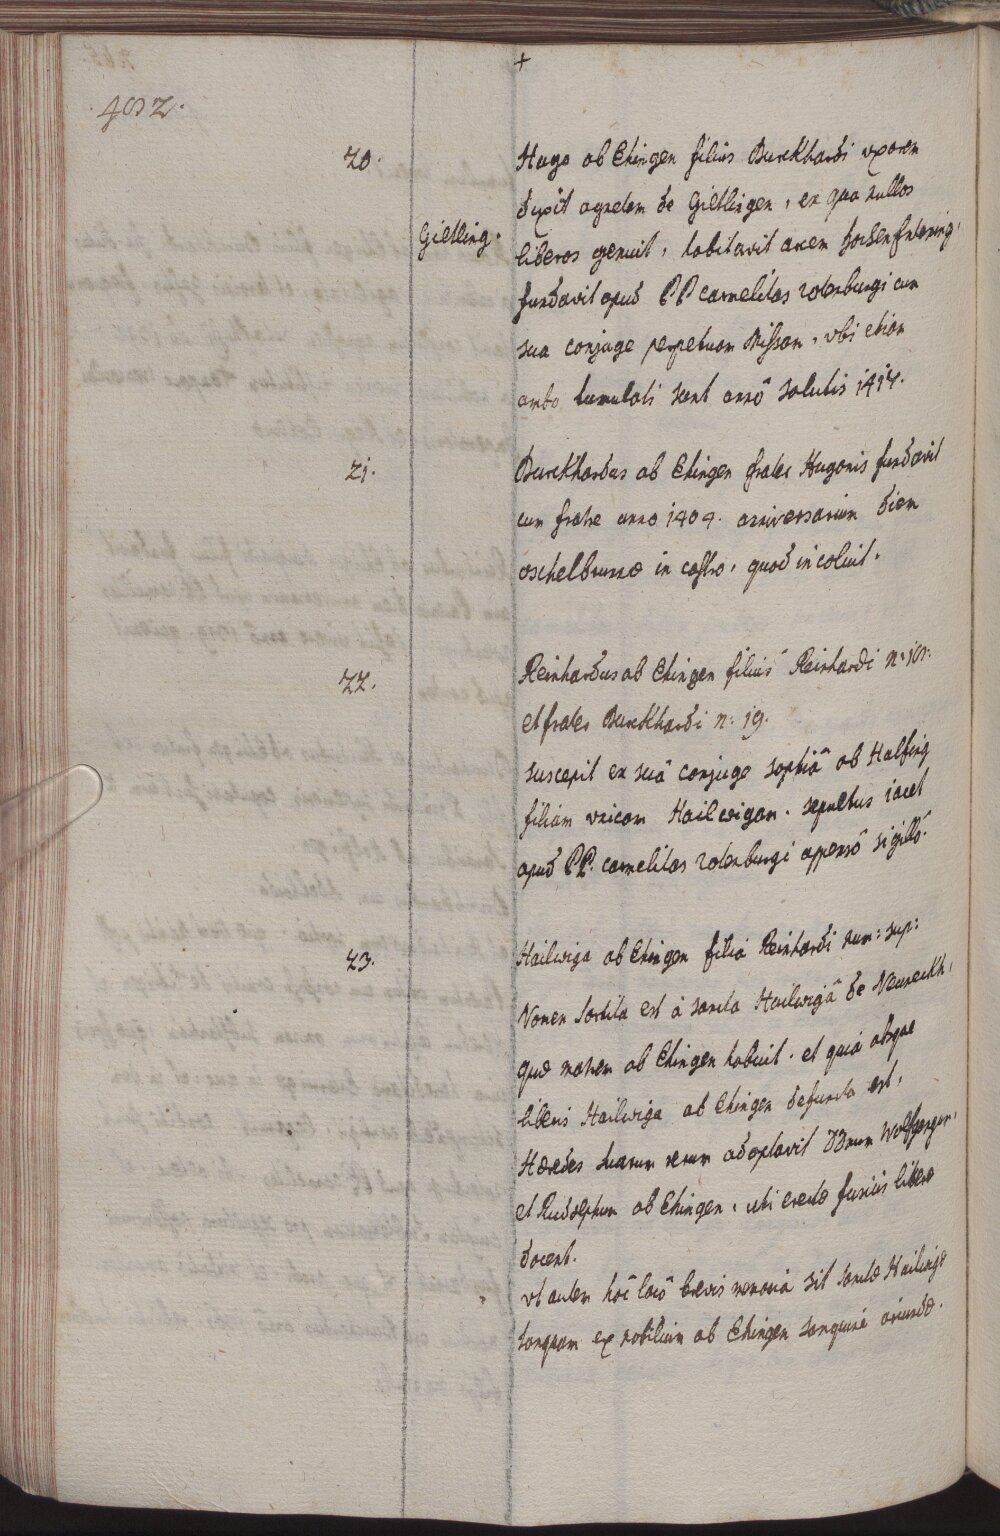 +
402.
20.
Hugo ab Ehingen filius Burckhardi uxorem
duxit agnetem de Gieltlingen, ex qua nullos
Gieltling.
liberos genuit, habitavit arcem
fundavit apud PP carmelitas rotenburgi cum
sua conjuge perpetuam Missam, vbi etiam
ambo tumulati sunt anno salutis 1417.
21.
Burckhardus ab Ehingen frater Hugonis fundavit
cum fratre anno 1404. anniversarium diem
oschelbrunnae in castro, quod incoluit.
22.
Reinhardus ab Ehingen filius Reinhardi n:
et frater Burckhardi n: 19.
suscepit ex suâ conjuge sophiâ ab Halfing
filiam unicam Hailwigam. sepultus iacet
apud PP. carmelitas rotenburgi appensô sigillô.
23.
Hailwiga ab Ehingen filia Reinhardi num: sup:
Nomen sortita est à sancta Hailwigâ de Neuneckh,
quae matrem ab Ehingen habuit. et quia absque
liberis Hailwiga ab Ehingen defuncta est,
Haeredes suarum rerum adoptavit Wolfgangum,
et Rudolphum ab Ehingen, uti fusius literae
docent.
vt autem hoc locô brevis memoria sit sanctae Hailwigae
tanquam ex nobilium ab Ehingen sanguine oriundae.